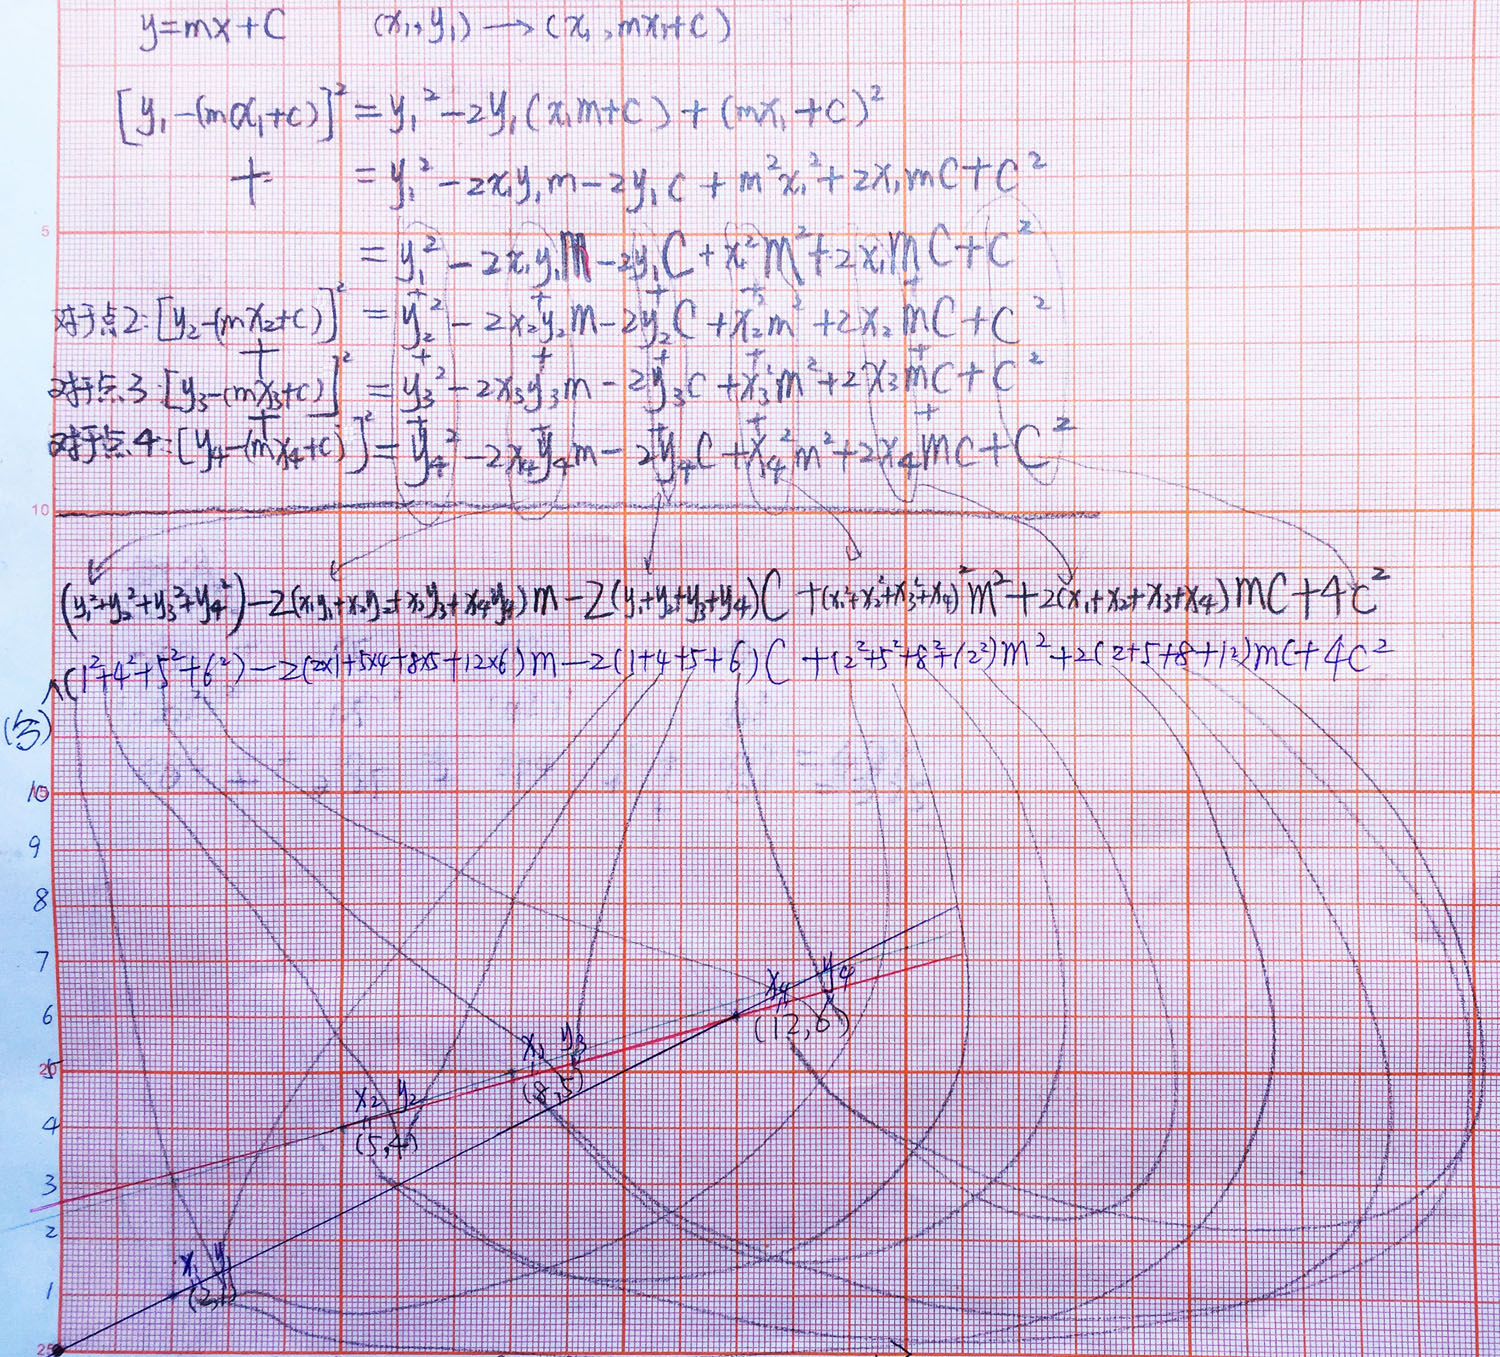 y=mx+C (x₁,y₁)→(x₁,mx₁+C)
[y₁-(mx₁+c)]²=y₁²-2y₁(x₁m+c)+(mx₁+c)²
+ =y₁²-2x₁y₁m-2y₁c+m²x₁²+2x₁mC+C²
5
=y₁²-2x₁y₁m-2y₁C+x₁²m²+2x₁mC+C²
+ + + + +
对于点2:[y₂-(mx₂+c)]²=y₂²-2x₂y₂m-2y₂C+x₂²m²+2x₂mC+C²
+ + + + + +
对于点3:[y₃-(mx₃+c)]²=y₃²-2x₃y₃m-2y₃c+x₃²m²+2x₃mC+C²
+ + + + + +
对于点4:[y₄-(mx₄+c)]²=y₄²-2x₄y₄m-2y₄C+x₄²m²+2x₄mc+C²
10
(y₁²+y₂²+y₃²+y₄²)-2(x₁y₁+x₂y₂+x₃y₃+x₄y₄)m-2(y₁+y₂+y₃+y₄)C+(x₁²+x₂²+x₃²+x₄)²m²+2(x₁+x₂+x₃+x₄)mC+4c²
(1²+4²+5²+6²)-2(2x1+5x4+8x5+12x6)m-2(1+4+5+6)C+(2²+5²+8²+12²)m²+2(2+5+8+12)mC+4C²
10
9
8
7
x₄ y₄
6
(12,6)
x₃ y₃
20
5
(8,5)
x₂ y₂
4
(5,4)
3
2
x₁ y₁
1
(2,1)
25